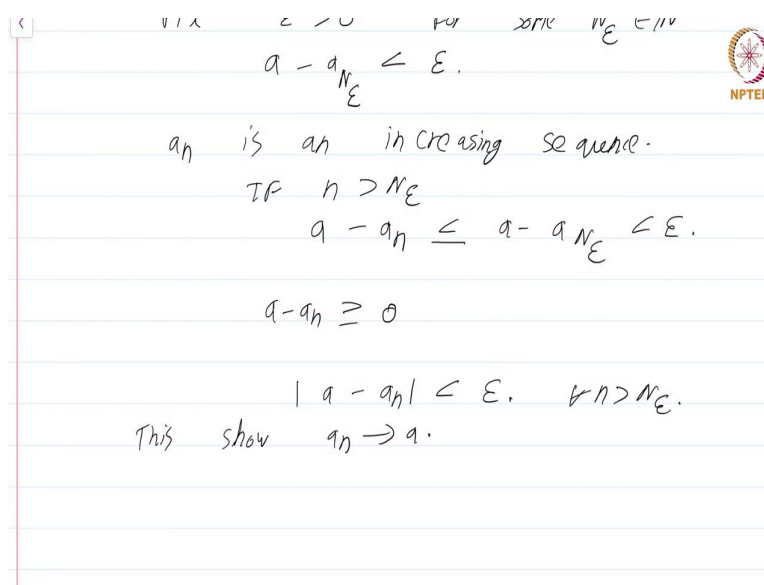 Fix ε > 0 for some N_ε ∈ ℕ
a - a_{N_ε} < ε.
a_n is an increasing sequence.
IF n > N_ε
a - a_n ≤ a - a_{N_ε} < ε.
a - a_n ≥ 0
|a - a_n| < ε. ∀ n > N_ε.
This show a_n → a.
NPTEL